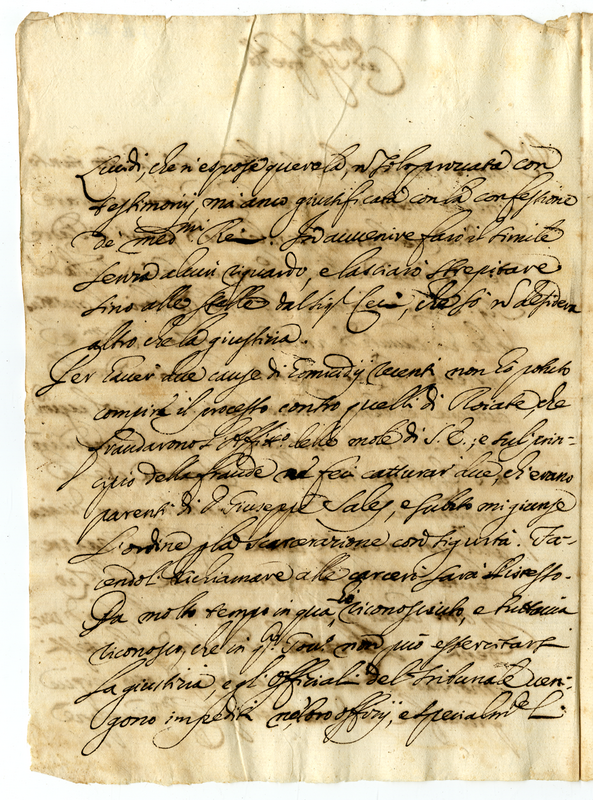 che n'espose querela, n solo provata con
testimonij, mà anco giustificata con la confessione
de med.mi Rei. In avvenire farò il simile
senza alcun riguardo, e lasciarò strepitare
sino alle stelle dal Sig.r Ceci, che sò n desidera
altro che la giustizia.
Per haver due cause di homicidij recenti non hò potuto
compire il processo contro quelli di Roiate che
fraudavono l'Affitt.o delle mole di S. E.; e sul prin-
cipio della fraude ne feci catturar due, ch'erano
parenti di D. Giuseppe Sales, e subito mi giunse
l'ordine p la scarcerazione con sigurtà. Fa-
cendoli richiamare alle carceri sarà l'istesso.
Da molto tempo in quà hò riconosciuto, e tuttavia
riconosco, che in q.o Gov.o non può essercitarsi
la giustizia, e gl'Officiali del Tribunale ven-
gono impediti ne loro offizij, e specialm.te